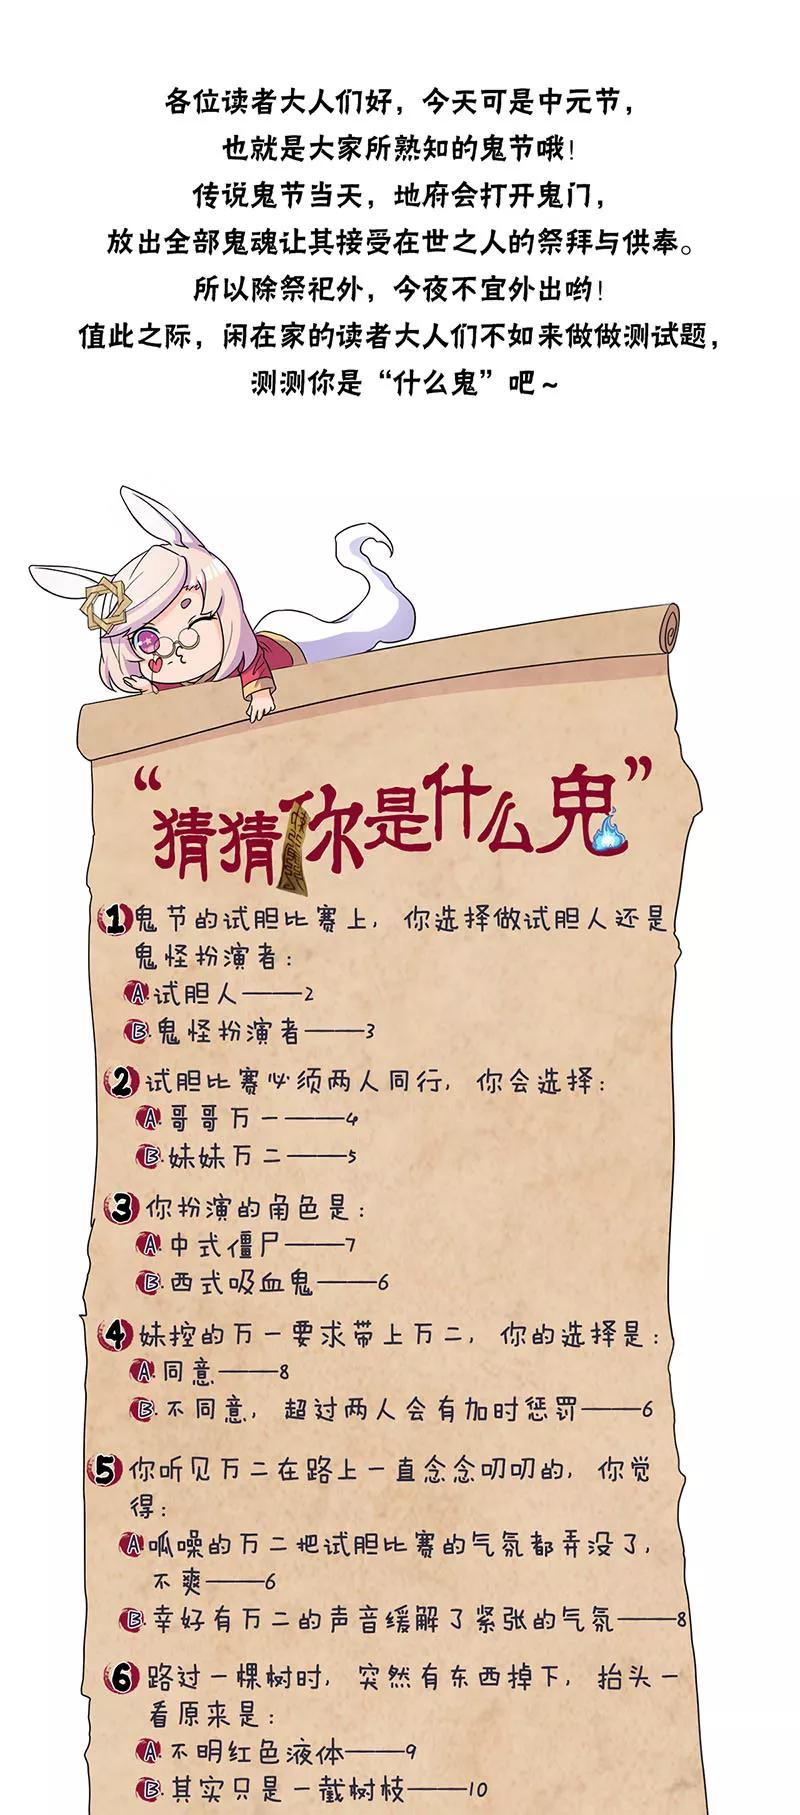 各位读者大人们好，今天可是中元节，
也就是大家所熟知的鬼节哦！
传说鬼节当天，地府会打开鬼门，
放出全部鬼魂让其接受在世之人的祭拜与供奉。
所以除祭祀外，今夜不宜外出哟！
值此之际，闲在家的读者大人们不如来做做测试题，
测测你是“什么鬼”吧～
“猜猜你是什么鬼”
1 鬼节的试胆比赛上，你选择做试胆人还是
鬼怪扮演者：
A.试胆人——2
B.鬼怪扮演者——3
2 试胆比赛必须两人同行，你会选择：
A.哥哥万一——4
B.妹妹万二——5
3 你扮演的角色是：
A.中式僵尸——7
B.西式吸血鬼——6
4 妹控的万一要求带上万二，你的选择是：
A.同意——8
B.不同意，超过两人会有加时惩罚——6
5 你听见万二在路上一直念念叨叨的，你觉
得：
A.呱噪的万二把试胆比赛的气氛都弄没了，
不爽——6
B.幸好有万二的声音缓解了紧张的气氛——8
6 路过一棵树时，突然有东西掉下，抬头一
看原来是：
A.不明红色液体——9
B.其实只是一截树枝——10